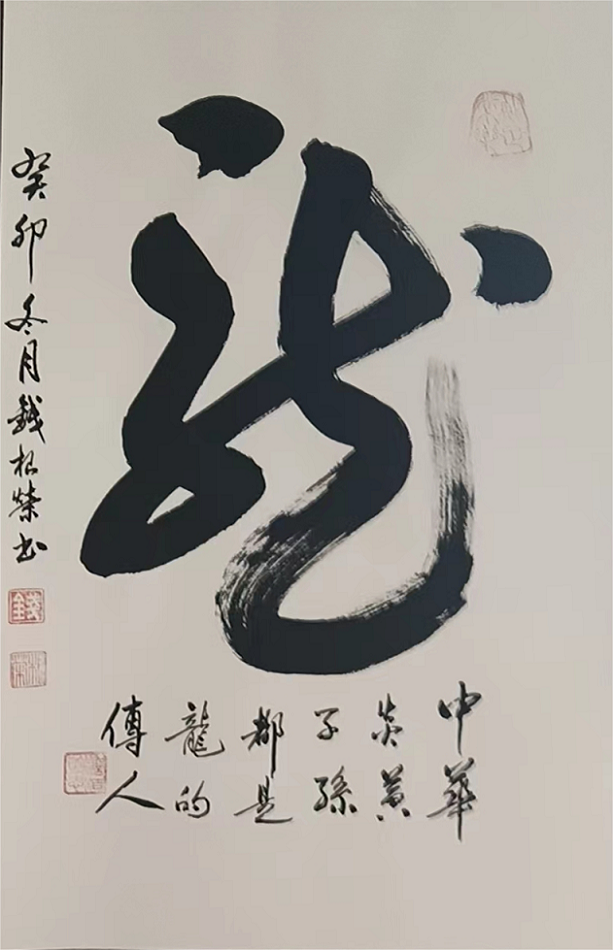 龍
中華
炎黄
子孫
都是
龍的
傳人
癸卯冬月錢松榮书